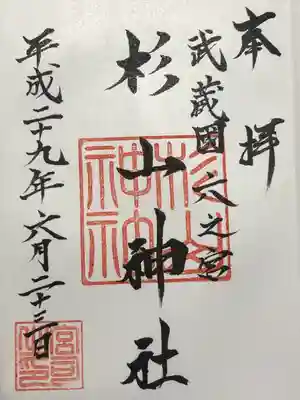 奉拝
武蔵国六之宮
杉山神社
平成二十九年六月二十三日
杉山神社